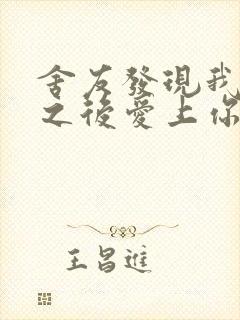 舍友發現我
之後愛上你
王昌進